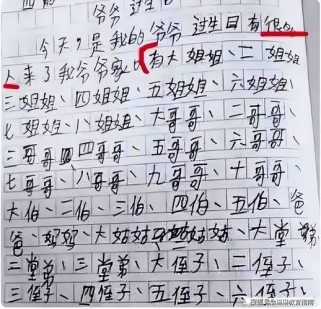 爷爷过生日
今天,是我的爷爷过生日有很多
人来了我爷爷家里有大姐姐、二姐姐
三姐姐、四姐姐、五姐姐、六姐姐、
七姐姐、八姐姐、大哥哥、二哥哥、
三哥哥、四哥哥、五哥哥、六哥哥、
七哥哥、八哥哥、九哥哥、十哥哥、
大伯、二伯、三伯、四伯、五伯、爸
爸、妈妈、大姑姑、姑姑、大堂弟
三堂弟、三堂弟、大侄子、二侄子、
三侄子、四侄子、五侄子、六侄子、